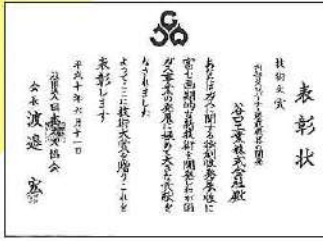 表彰状
技術大賞
谷口工業株式会社殿
あなたはガスに関する独創性発展性に
富む画期的な新技術を開発しわが国
ガス事業の発展に極めて大きな貢献を
なされました
よってここに技術大賞を贈りこれを
表彰します
平成十年六月十一日
会長 渡邉 宏